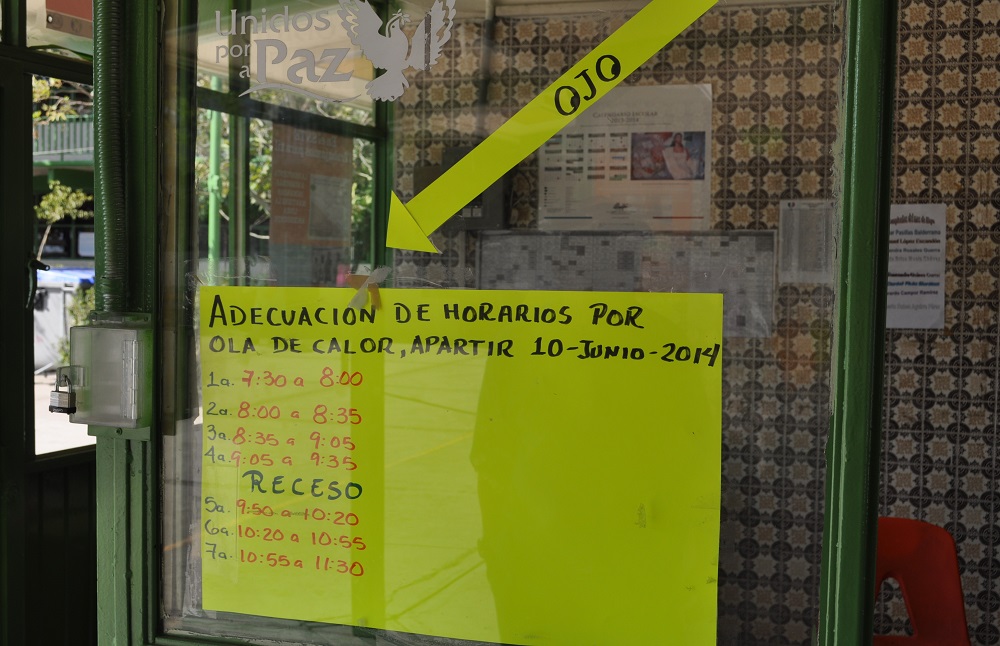 Unidos
por
a Paz
OJO
CALENDARIO ESCOLAR
ADECUACION DE HORARIOS POR
OLA DE CALOR, APARTIR 10-JUNIO-2014
1a. 7:30 a 8:00
2a. 8:00 a 8:35
3a. 8:35 a 9:05
4a. 9:05 a 9:35
RECESO
5a. 9:50 a 10:20
6a. 10:20 a 10:55
7a. 10:55 a 11:30